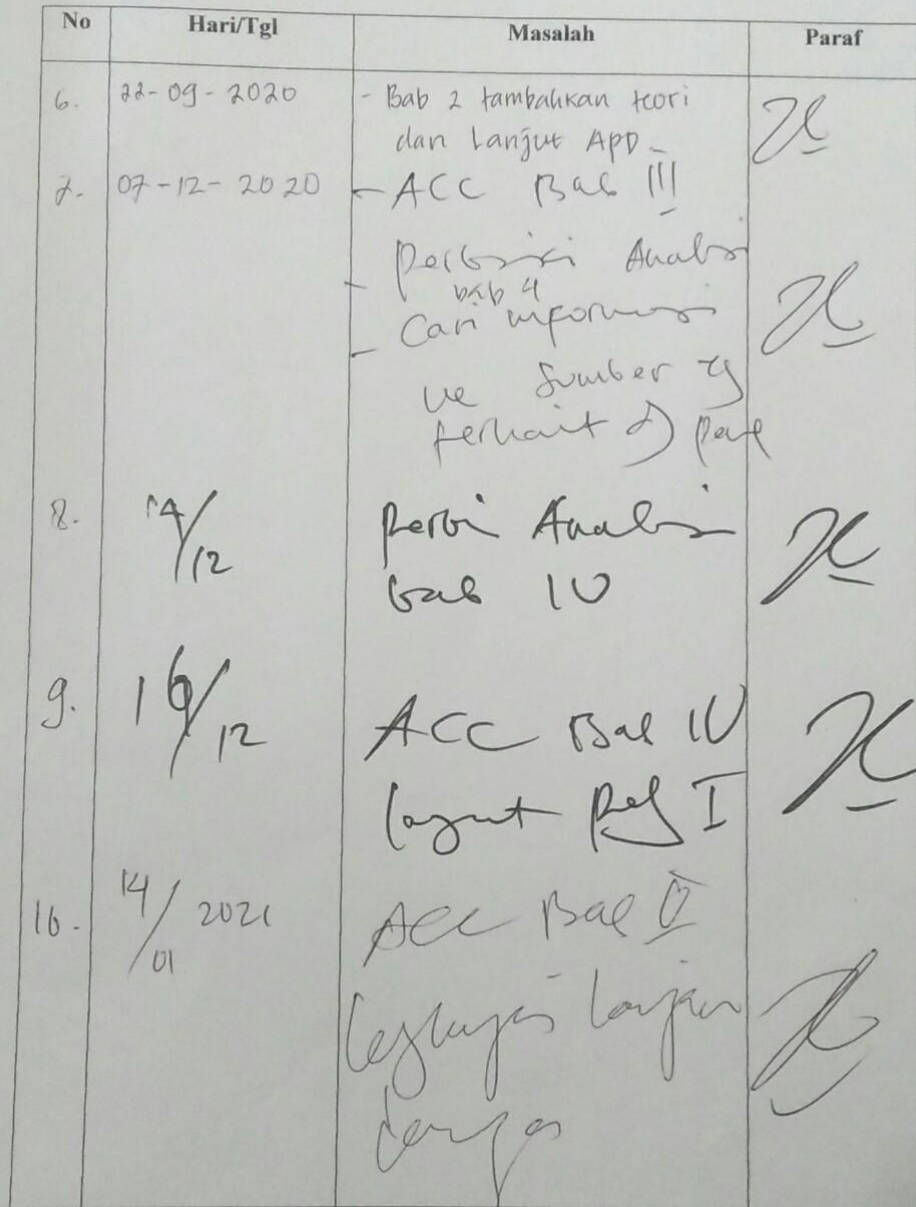 No Hari/Tgl Masalah Paraf
6. 22-09-2020 - Bab 2 tambahkan teori
dan Lanjut APD -
7. 07-12-2020 - ACC Bab III
- Perbaiki Analisi
bab 4
- Cari informasi
ke Sumber yg
terkait
8. 14/12 Analisi
bab IV
9. 16/12 ACC Bab IV
I
10. 14/01 2021 ACC Bab